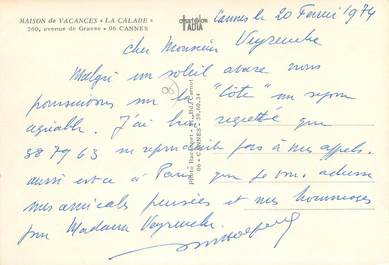 MAISON de VACANCES « LA CALADE »
260, avenue de Grasse - 06 CANNES
TADIA
Cannes le 20 Fevrier 1974
cher Monsieur Veyrenche
Malgré un soleil avare nous
poursuivons sur la "Côte" un repos
agréable. J'ai bien regretté que
38 79 63 ne reponde pas à mes appels.
aussi est-ce à Paris que je vous adresse
mes amicales pensées et mes hommages
pour Madame Veyrenche
Photo Bardoux - Bd. Carnot
06 - CANNES - 39.60.34